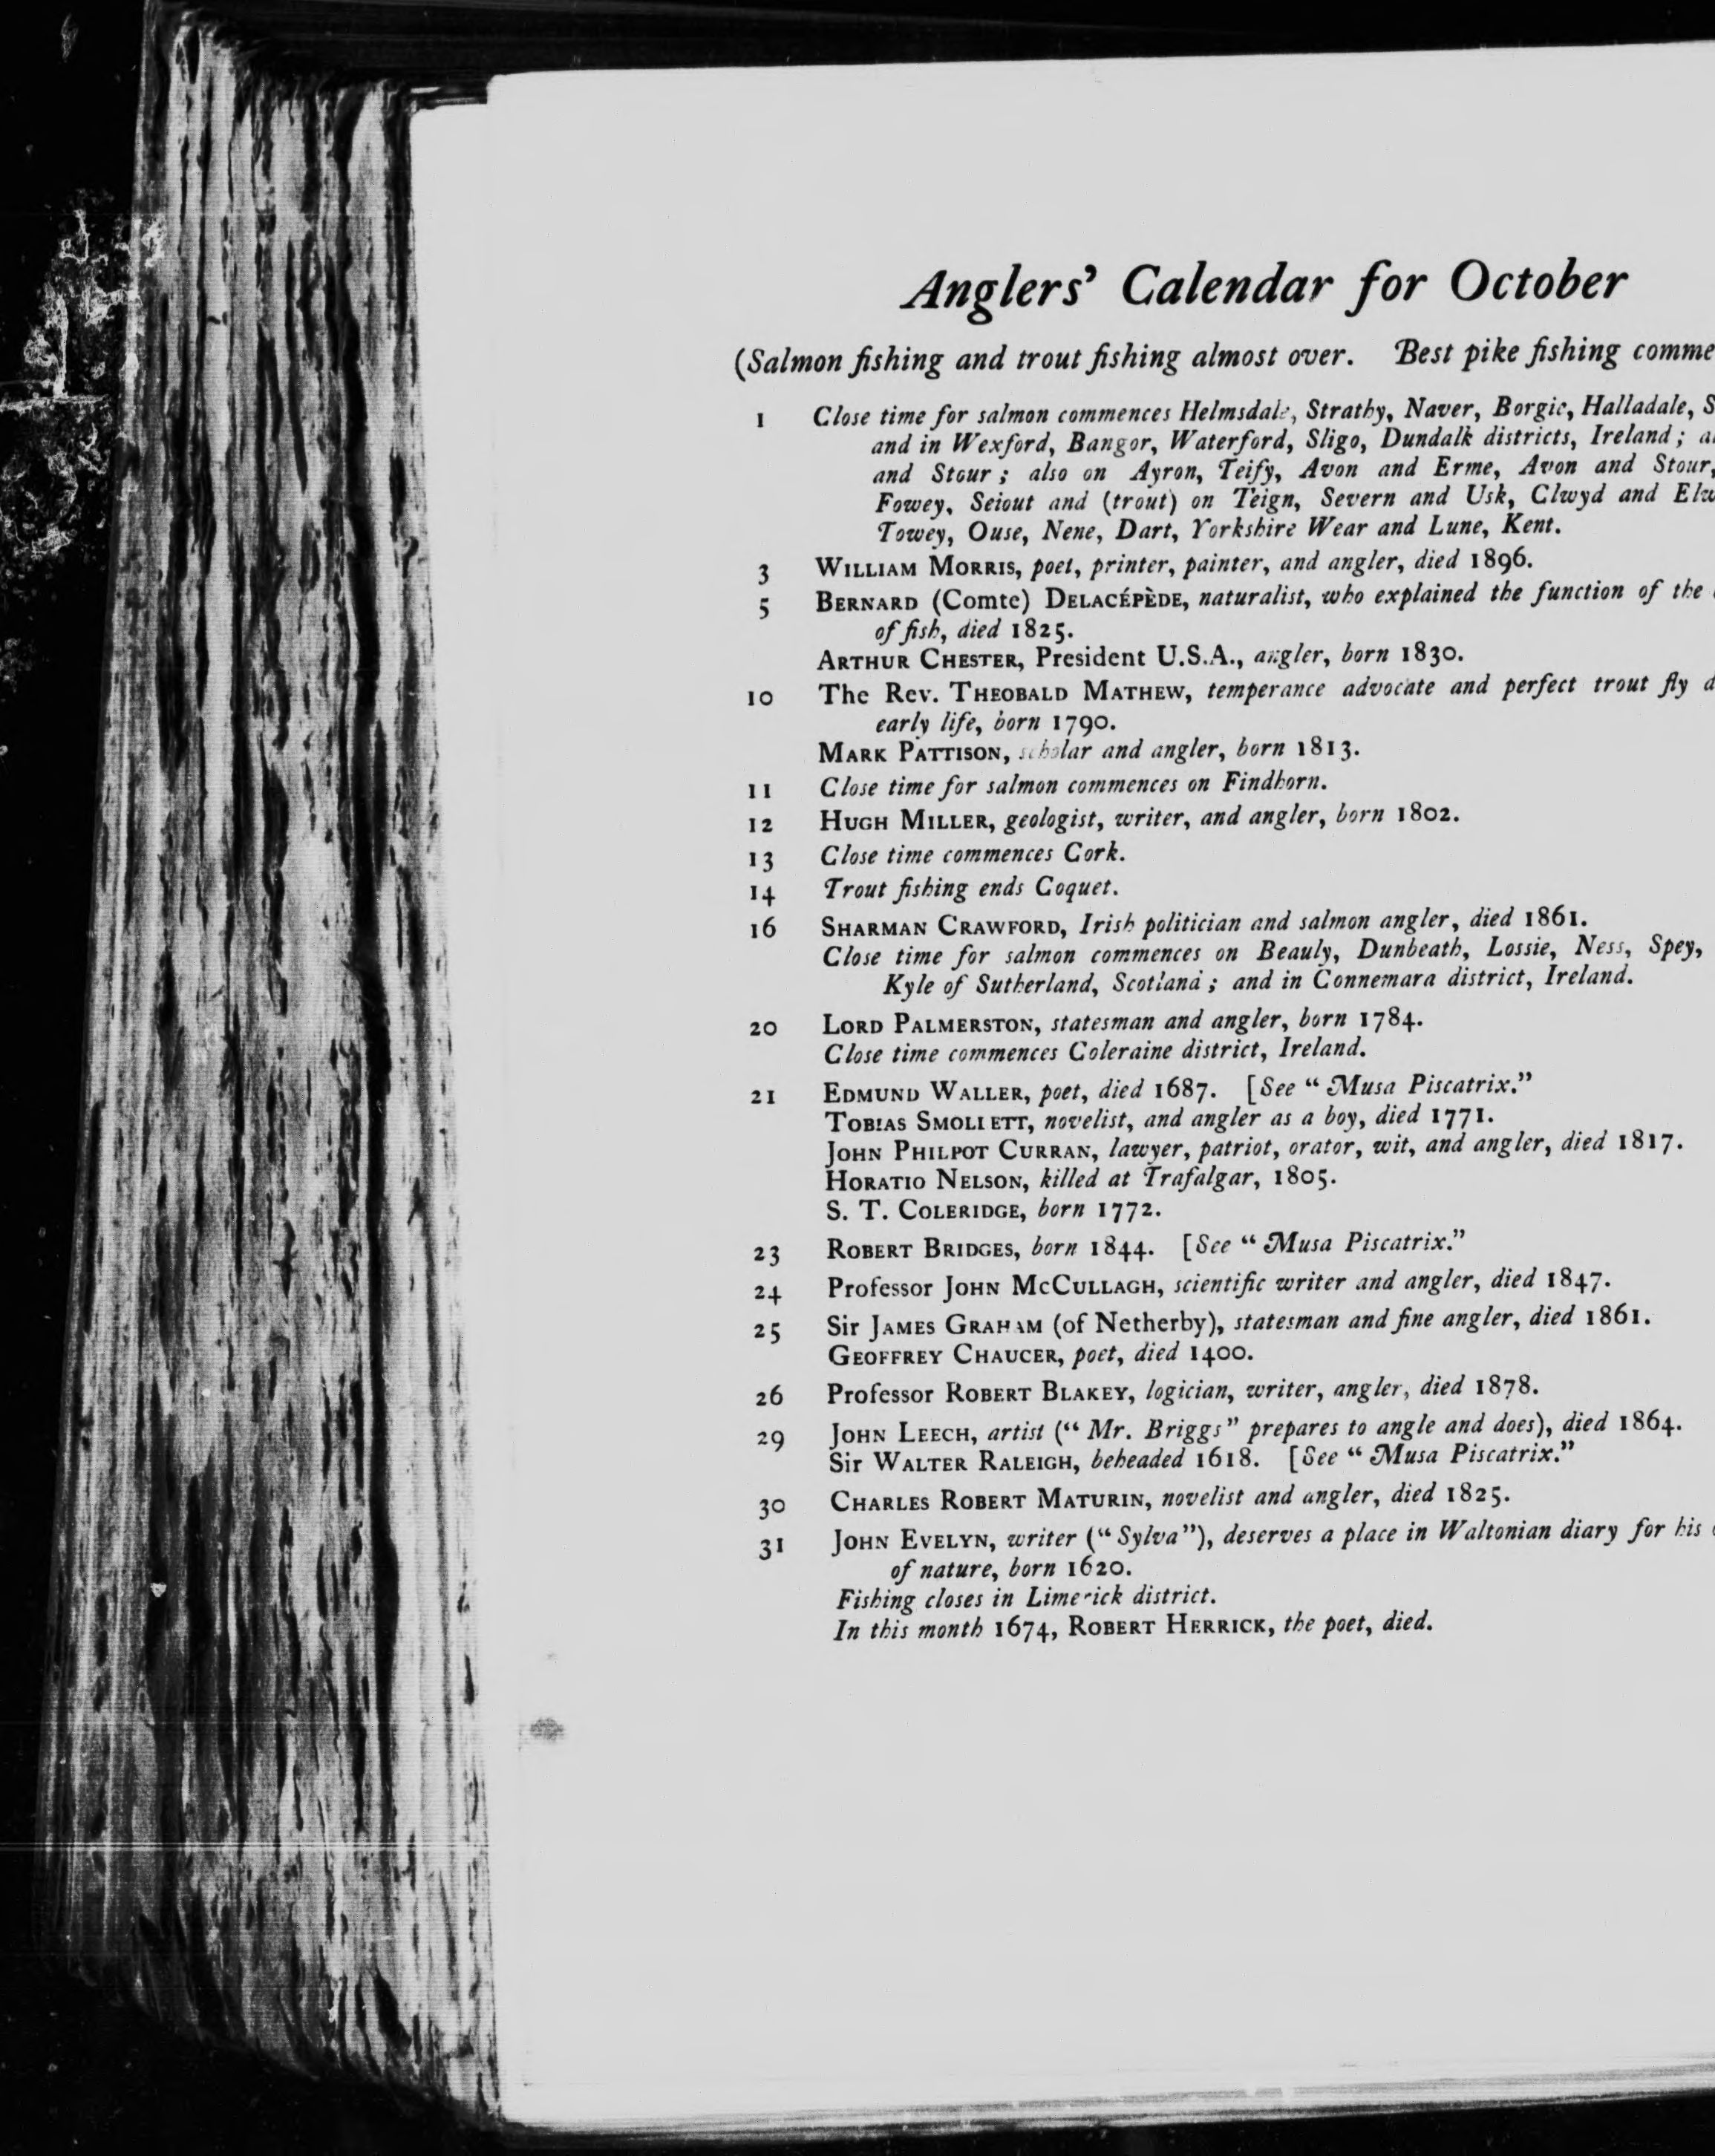 Anglers' Calendar for October
(Salmon fishing and trout fishing almost over. Best pike fishing comme
1 Close time for salmon commences Helmsdale, Strathy, Naver, Borgie, Halladale, S
and in Wexford, Bangor, Waterford, Sligo, Dundalk districts, Ireland; a
and Stour; also on Ayron, Teify, Avon and Erme, Avon and Stour,
Fowey, Seiout and (trout) on Teign, Severn and Usk, Clwyd and Elw
Towey, Ouse, Nene, Dart, Yorkshire Wear and Lune, Kent.
3 WILLIAM MORRIS, poet, printer, painter, and angler, died 1896.
5 BERNARD (Comte) DELACÉPÈDE, naturalist, who explained the function of the
of fish, died 1825.
ARTHUR CHESTER, President U.S.A., angler, born 1830.
10 The Rev. THEOBALD MATHEW, temperance advocate and perfect trout fly d
early life, born 1790.
MARK PATTISON, scholar and angler, born 1813.
11 Close time for salmon commences on Findhorn.
12 HUGH MILLER, geologist, writer, and angler, born 1802.
13 Close time commences Cork.
14 Trout fishing ends Coquet.
16 SHARMAN CRAWFORD, Irish politician and salmon angler, died 1861.
Close time for salmon commences on Beauly, Dunbeath, Lossie, Ness, Spey,
Kyle of Sutherland, Scotland; and in Connemara district, Ireland.
20 LORD PALMERSTON, statesman and angler, born 1784.
Close time commences Coleraine district, Ireland.
21 EDMUND WALLER, poet, died 1687. [See "Musa Piscatrix."
TOBIAS SMOLLETT, novelist, and angler as a boy, died 1771.
JOHN PHILPOT CURRAN, lawyer, patriot, orator, wit, and angler, died 1817.
HORATIO NELSON, killed at Trafalgar, 1805.
S. T. COLERIDGE, born 1772.
23 ROBERT BRIDGES, born 1844. [See "Musa Piscatrix."
24 Professor JOHN MCCULLAGH, scientific writer and angler, died 1847.
25 Sir JAMES GRAHAM (of Netherby), statesman and fine angler, died 1861.
GEOFFREY CHAUCER, poet, died 1400.
26 Professor ROBERT BLAKEY, logician, writer, angler, died 1878.
29 JOHN LEECH, artist ("Mr. Briggs" prepares to angle and does), died 1864.
Sir WALTER RALEIGH, beheaded 1618. [See "Musa Piscatrix."
30 CHARLES ROBERT MATURIN, novelist and angler, died 1825.
31 JOHN EVELYN, writer ("Sylva"), deserves a place in Waltonian diary for his
of nature, born 1620.
Fishing closes in Limerick district.
In this month 1674, ROBERT HERRICK, the poet, died.